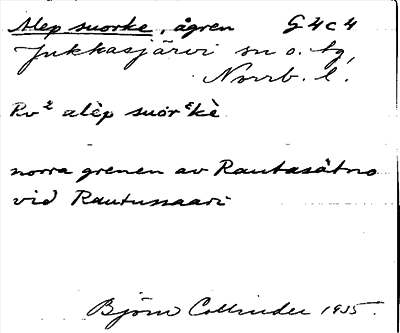 Alep suorke, ågren G 4 c 4
Jukkasjärvi sn o. tg,
Norrb. l.
Rv² alèp suorᵋkè
norra grenen av Rautasätno
vid Rautusaari
Björn Collinder 1935.